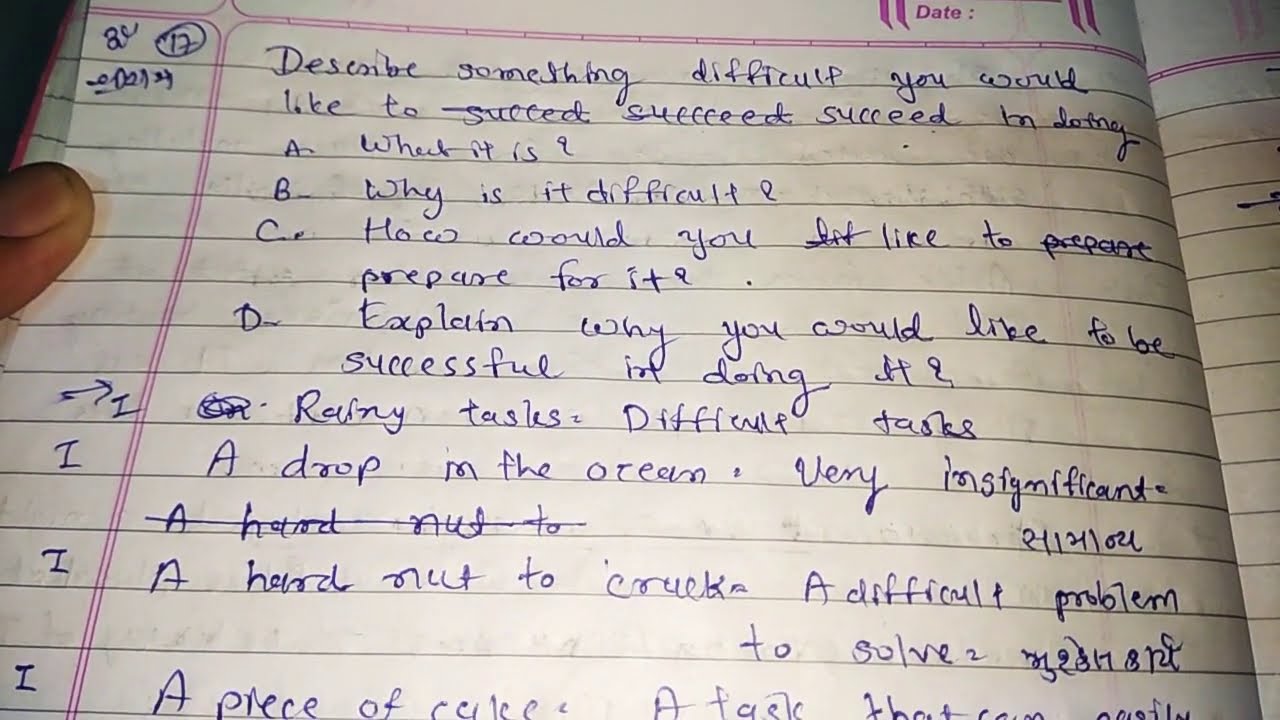 Date :
17
Describe something difficult you would
like to succed succceed succeed in doing
A. What it is?
B- Why is it difficult?
C. How would you like to prepare
prepare for it?
D- Explain why you would like to be
successful in doing it?
→ I Rainy tasks = Difficult tasks
I A drop in the ocean = Very insignificant =
સામાન્ય
A hard nut to
I A hard nut to cruck = A difficult problem
to solve =
I A piece of cake = A task that can easily